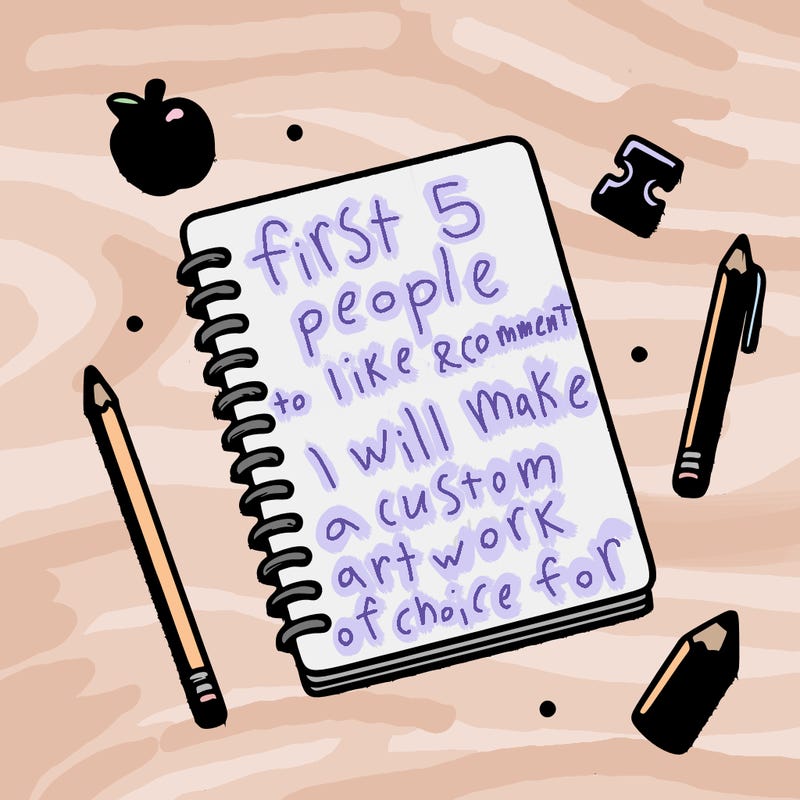 first 5
people
to like & comment
I will make
a custom
artwork
of choice for